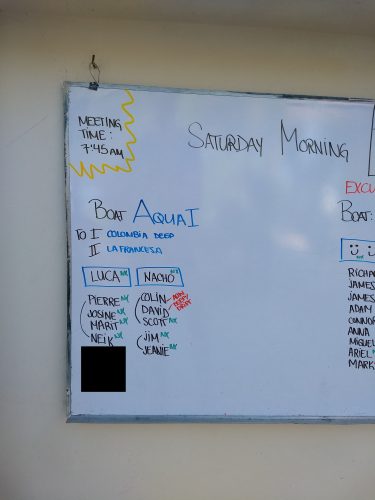 MEETING
TIME:
7:45 AM
SATURDAY MORNING
BOAT AQUA I
TO I COLOMBIA DEEP
II LA FRANCESA
LUCA NX
NACHO NX
PIERRE NX
JOSINE NX
MARIT NX
NEIK NX
COLIN
DAVID
SCOTT NX
JIM NX
JEANIE NX
EXCU
BOAT:
RICHA
JAMES
JAMES
ADAM
CONNOR
ANNA
MIGUEL
ARIEL
MARK